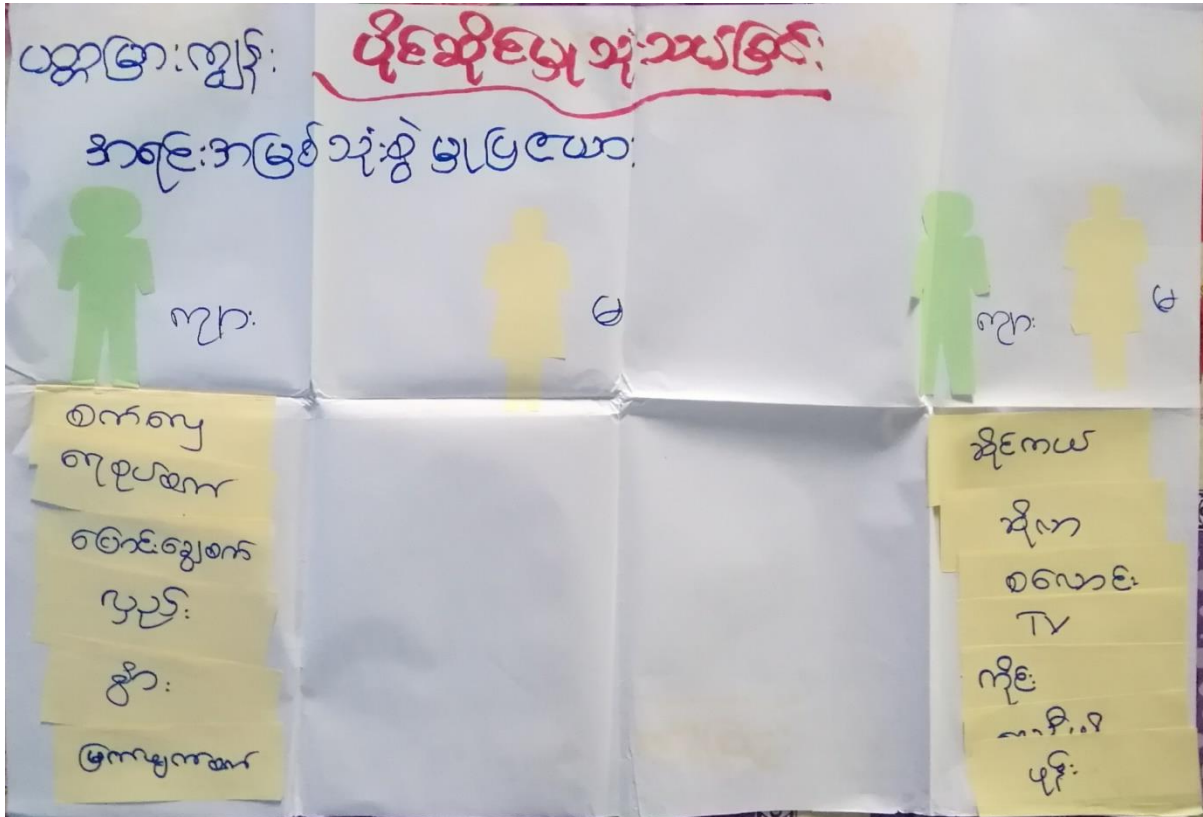 ပတ္တမြားကျွန်း
ပိုင်ဆိုင်မှု သုံးသပ်ခြင်း
အရင်းအမြစ်သုံးစွဲမှုပြဇယား
ကျား
မ
ကျား
မ
စက်လှေ
ရေစုပ်စက်
ပြောင်းချွေစက်
လှည်း
နွား
မြက်ဖျက်စက်
ဆိုင်ကယ်
ဆိုလာ
စလောင်း
TV
ကိုင်း
ဖုန်း